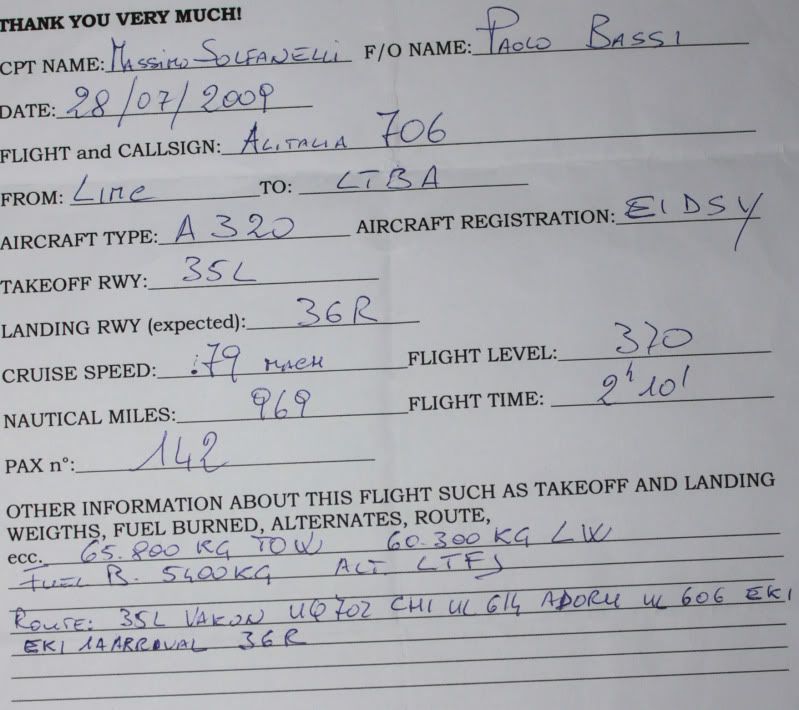 THANK YOU VERY MUCH!
CPT NAME: MASSIMO SOLFANELLI F/O NAME: PAOLO BASSI
DATE: 28/07/2009
FLIGHT and CALLSIGN: ALITALIA 706
FROM: LIMC TO: LTBA
AIRCRAFT TYPE: A 320 AIRCRAFT REGISTRATION: EIDSY
TAKEOFF RWY: 35L
LANDING RWY (expected): 36R
CRUISE SPEED: .79 MACH FLIGHT LEVEL: 370
NAUTICAL MILES: 969 FLIGHT TIME: 2h 10'
PAX n°: 142
OTHER INFORMATION ABOUT THIS FLIGHT SUCH AS TAKEOFF AND LANDING
WEIGTHS, FUEL BURNED, ALTERNATES, ROUTE,
ecc. 65.800 KG TOW 60.300 KG LW
FUEL B. 5400KG ALT. LTFJ
ROUTE: 35L VAKON UQ702 CHI UL 614 ADORU UL 606 EKI
EKI 1A ARRUVAL 36R